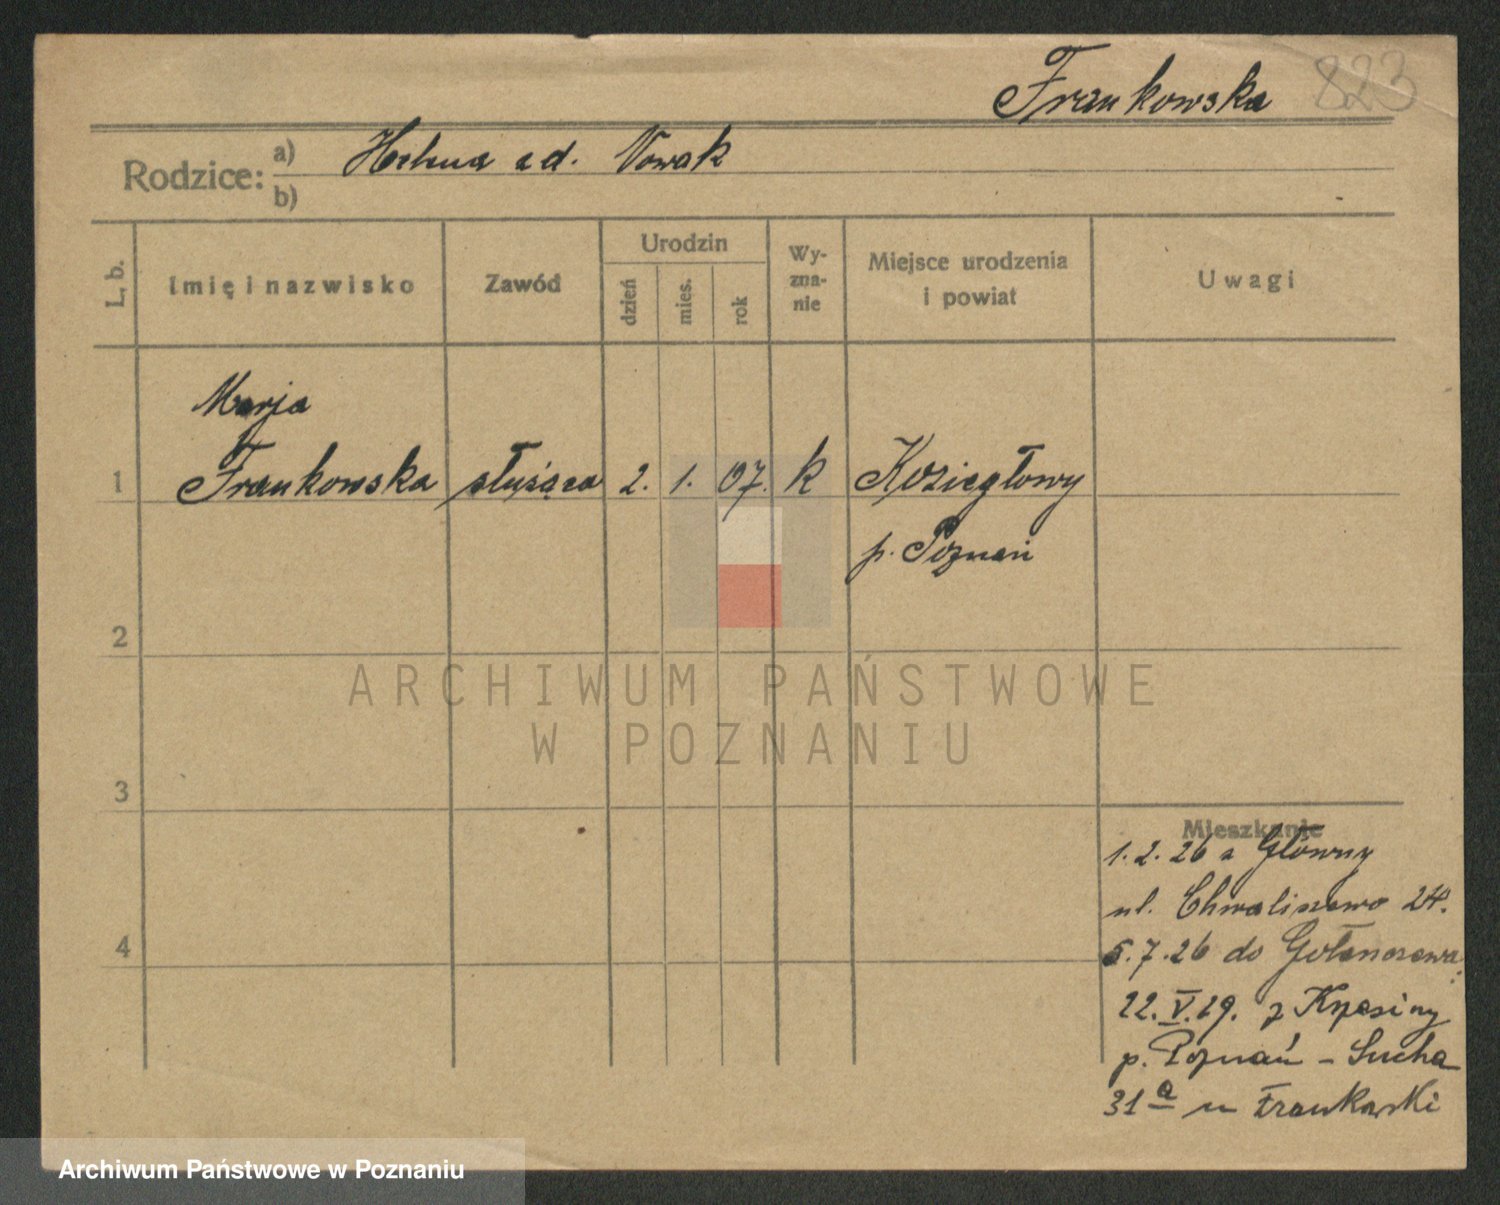 Frankowska 823
Rodzice: a) Helena zd. Nowak
b)
L. b. Imię i nazwisko Zawód Urodzin dzień mies. rok Wyznanie Miejsce urodzenia i powiat Uwagi
Marja
1 Frankowska służąca 2. 1. 07. k Koziegłowy
p. Poznań
2
ARCHIWUM PAŃSTWOWE
W POZNANIU
3
Mieszkanie
1.2.26 z Główny
ul. Chwaliszewo 24.
4 5.7.26 do
22.V.29. z Krzesiny
p. Poznań - Sucha
31a u Frankowski
Archiwum Państwowe w Poznaniu